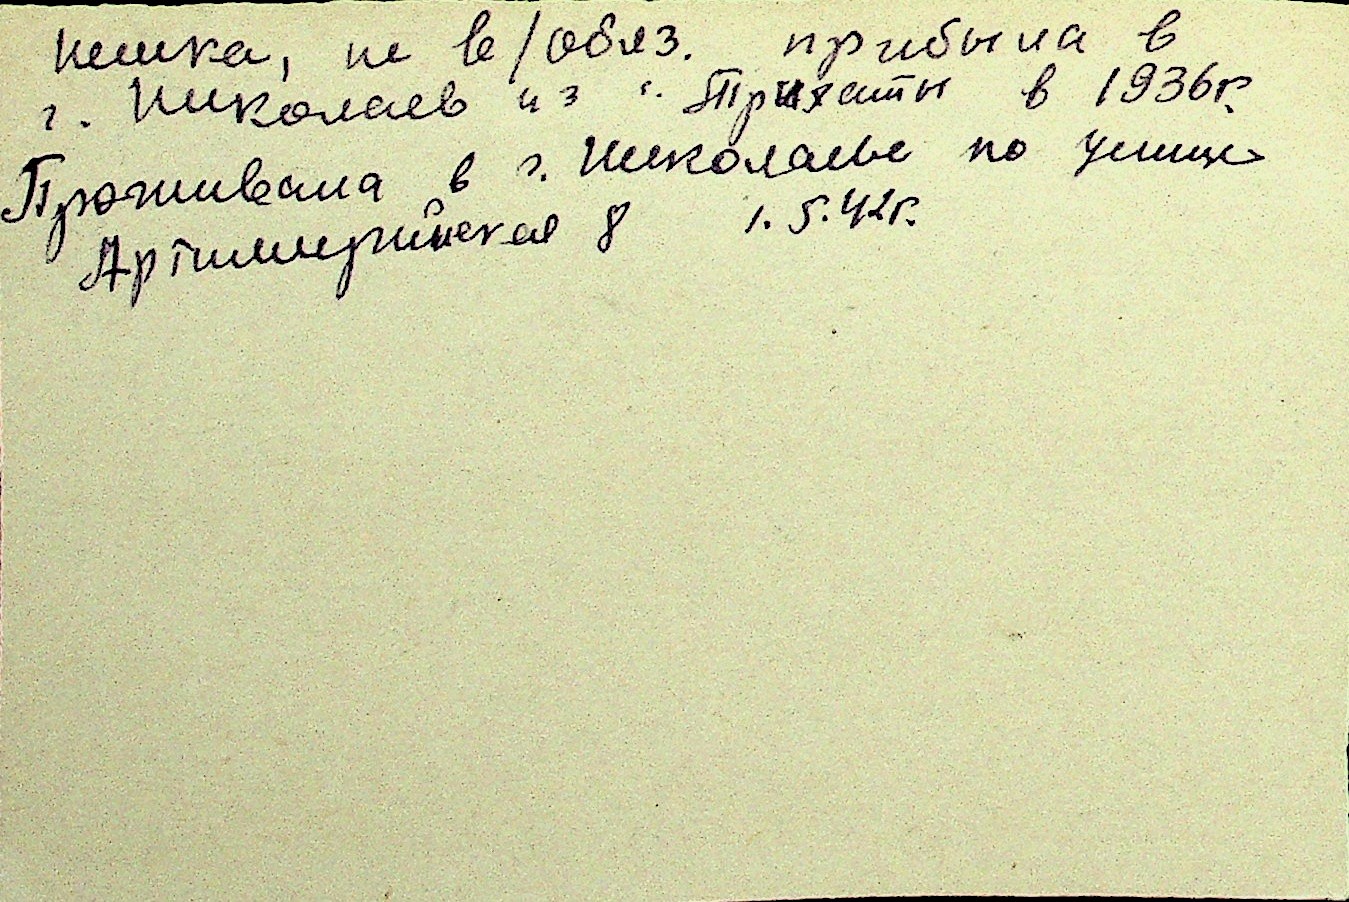 немка, не в/обяз. прибыла в
г. Николаев из с. Трихаты в 1936г.
Проживала в г. Николаеве по улице
Артиллерийская 8 1.5.42г.